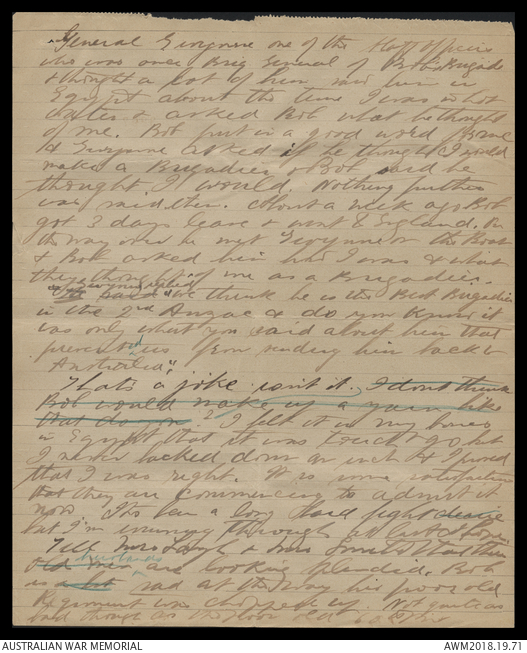 General Gwynne one of the Staff officers
who was once Brig General of Bob's Brigade
& thought a lot of him saw him in
Egypt about the time I was in hot
& asked Bob what he thought
of me. Bob put in a good word for me
& Gwynne asked if he thought I would
make a Brigadier & Bob said he
thought I would. Nothing further
was said then. About a week ago Bob
got 3 days leave & went to England. On
the way over he met Gwynne on the Boat
& Bob asked him how I was & what
they thought of me as a Brigadier.
Gwynne replied "we think he is the Best Brigadier
in the 2nd Anzac & do you know it
was only what you said about him that
prevented us from sending him back to
Australia".
That's a joke isn't it. I don't think
Bob would make up a yarn like
that do you? I felt it in my bones
in Egypt that it was touch & go but
I never backed down an inch & I proved
that I was right. It is some satisfaction
that they are commencing to admit it
now. It's been a long hard fight
but I'm running through at last
Tell Mrs & Mrs that their
husbands are looking splendid. Bob
is sad at the way his poor old
Regiment was chopped up. Not quite as
bad though as the poor old
AUSTRALIAN WAR MEMORIAL
AWM2018.19.71